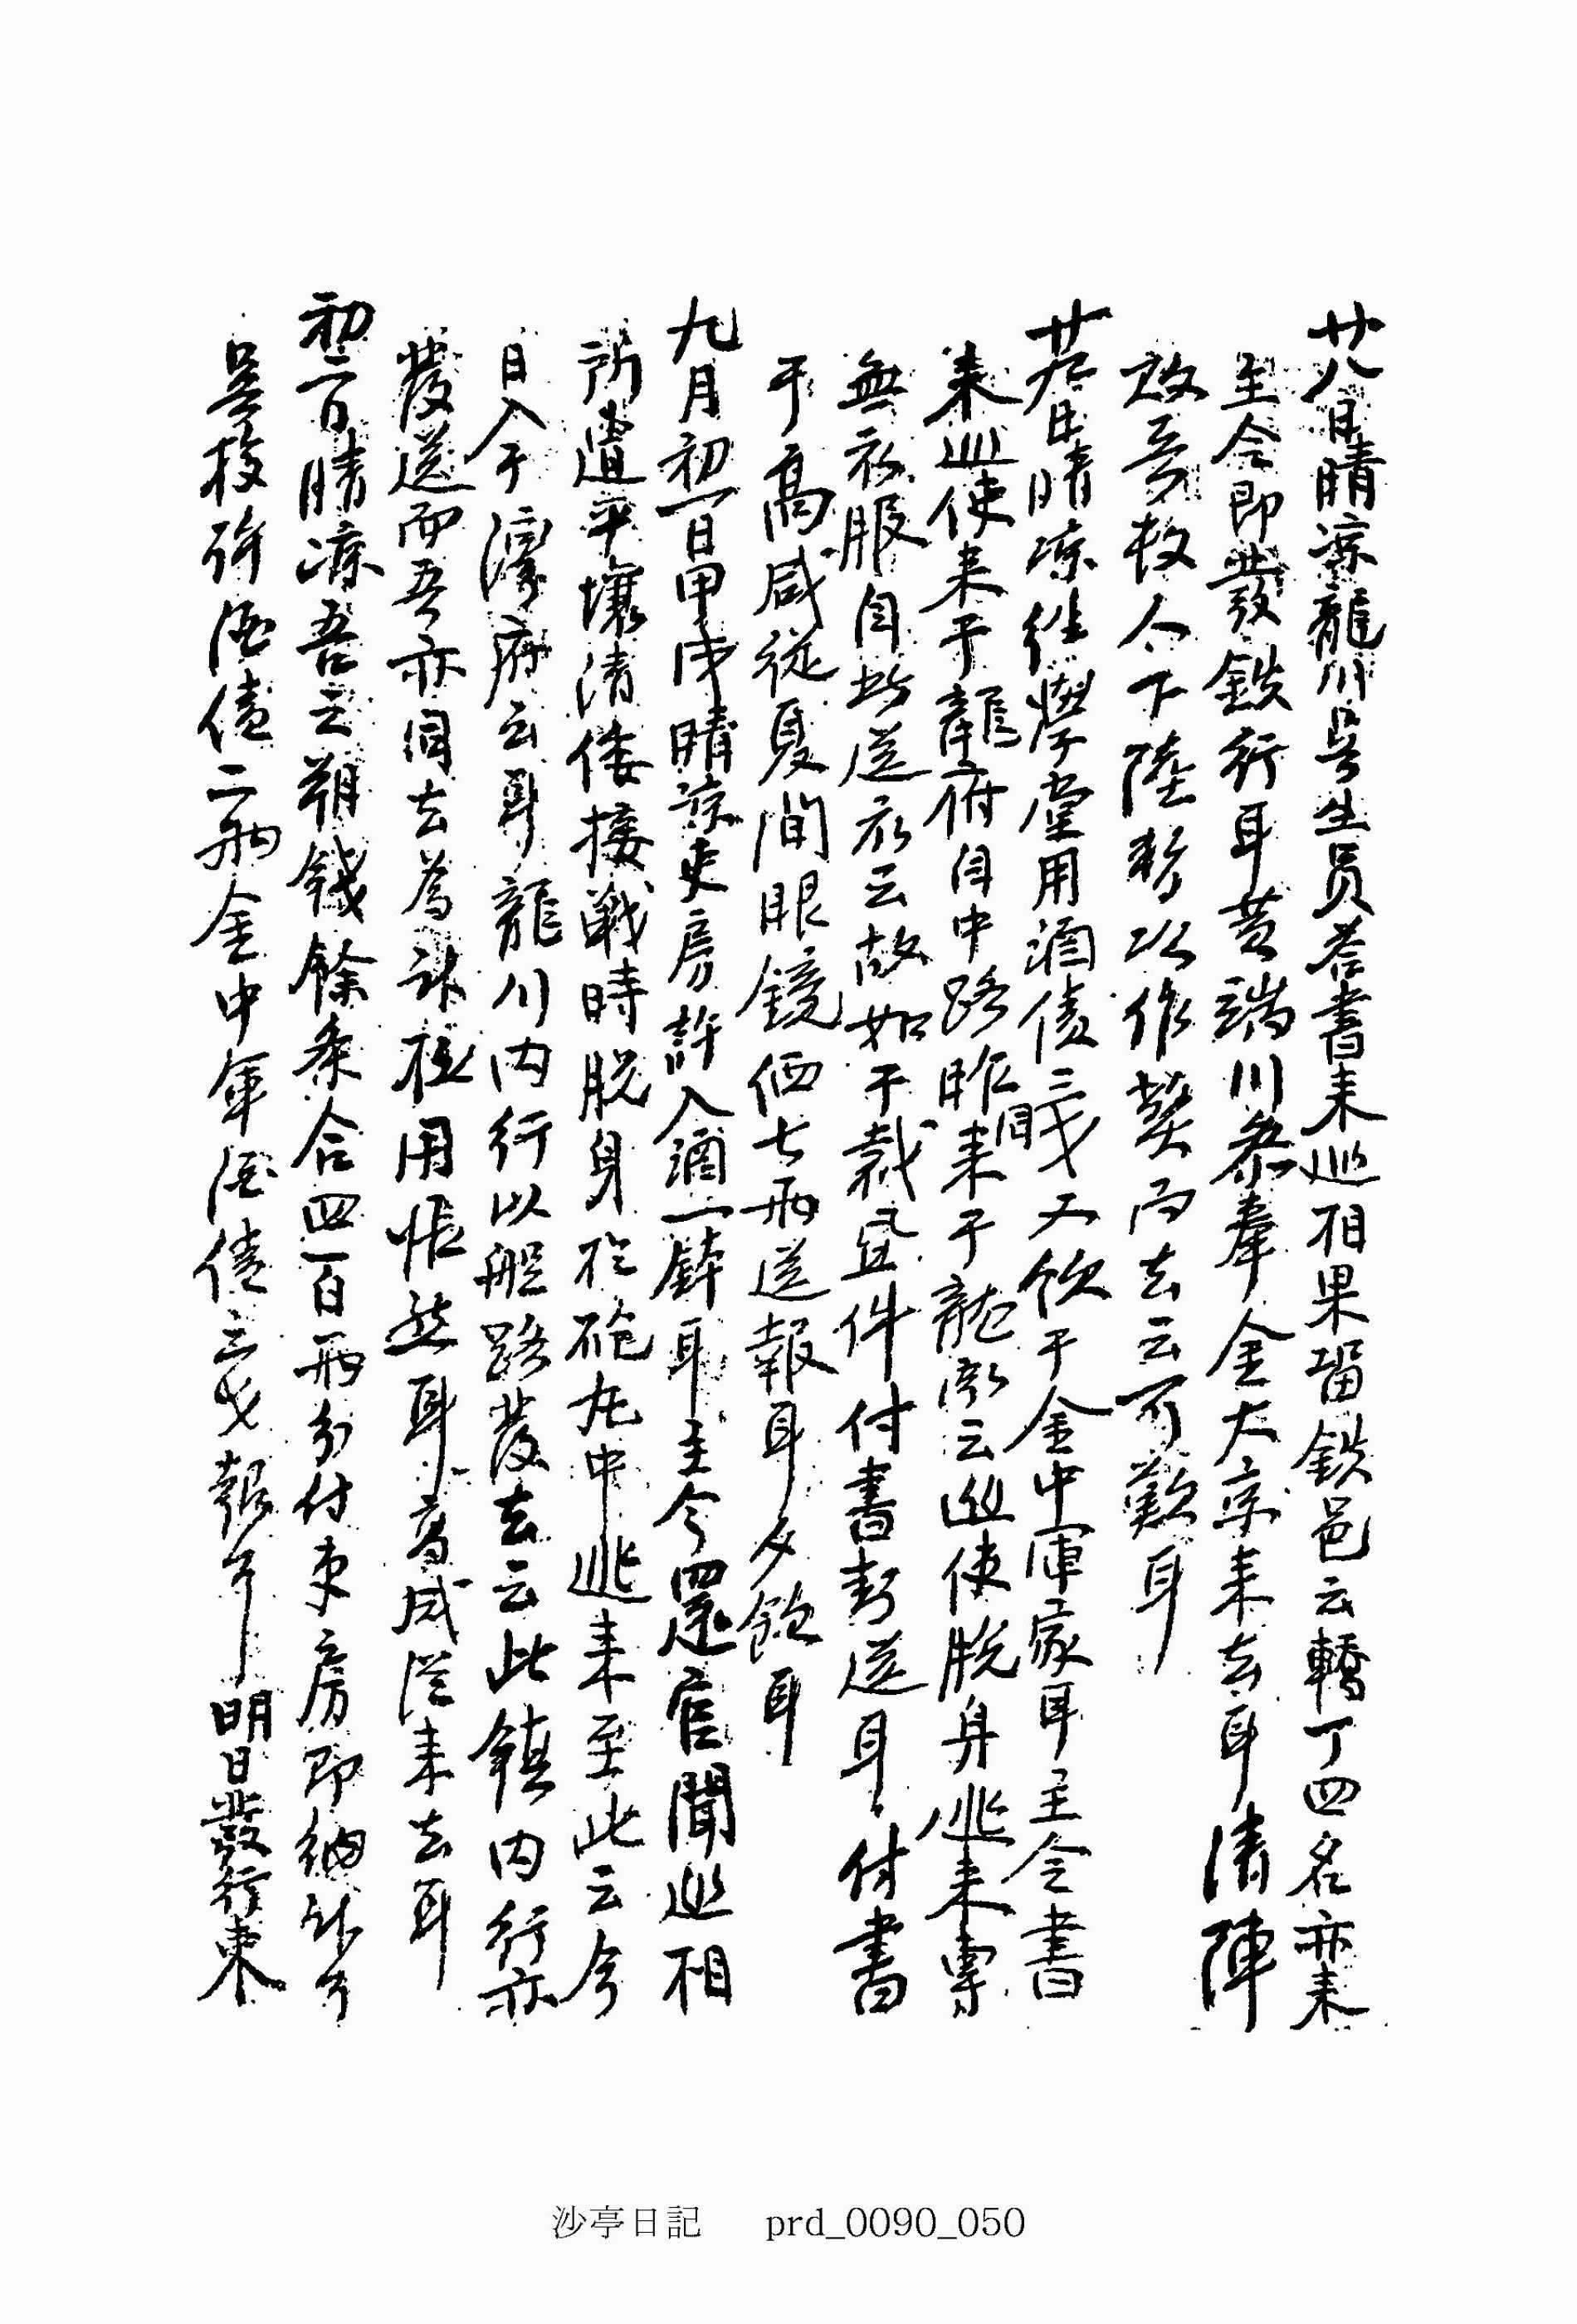 廿八日晴涼龍川吳生員答書來巡相果留鉄邑云轎丁四名亦來
主令即發鉄行耳黃端川奉金大京來去耳清陣
敗云數人下陸暫以作弊而去云可歎耳
廿九日晴涼往學堂用酒債三戔又飮于金中軍家耳主令書
來巡使來于龍府自中路昨來于龍府云巡使脫身逃來專
無衣服自此送衣云故如干裁置件付書封送耳付書
于高咸從夏間眼鏡価七兩送報耳夕飮耳
九月初一日甲戌晴涼吏房許入酒一鉢耳主令還官聞巡相
所遭平壤淸倭接戰時脫身於砲丸中逃來至此云今
日入于濠府云耳龍川內行以船路發去云此鎭內行亦
發送而吾亦同去爲計極用悵然耳高咸從來去耳
初二日晴涼吾之朔錢餘条合四百兩分付吏房即納計耳
吳校許酒債二兩金中軍酒債三戔報耳明日發行束